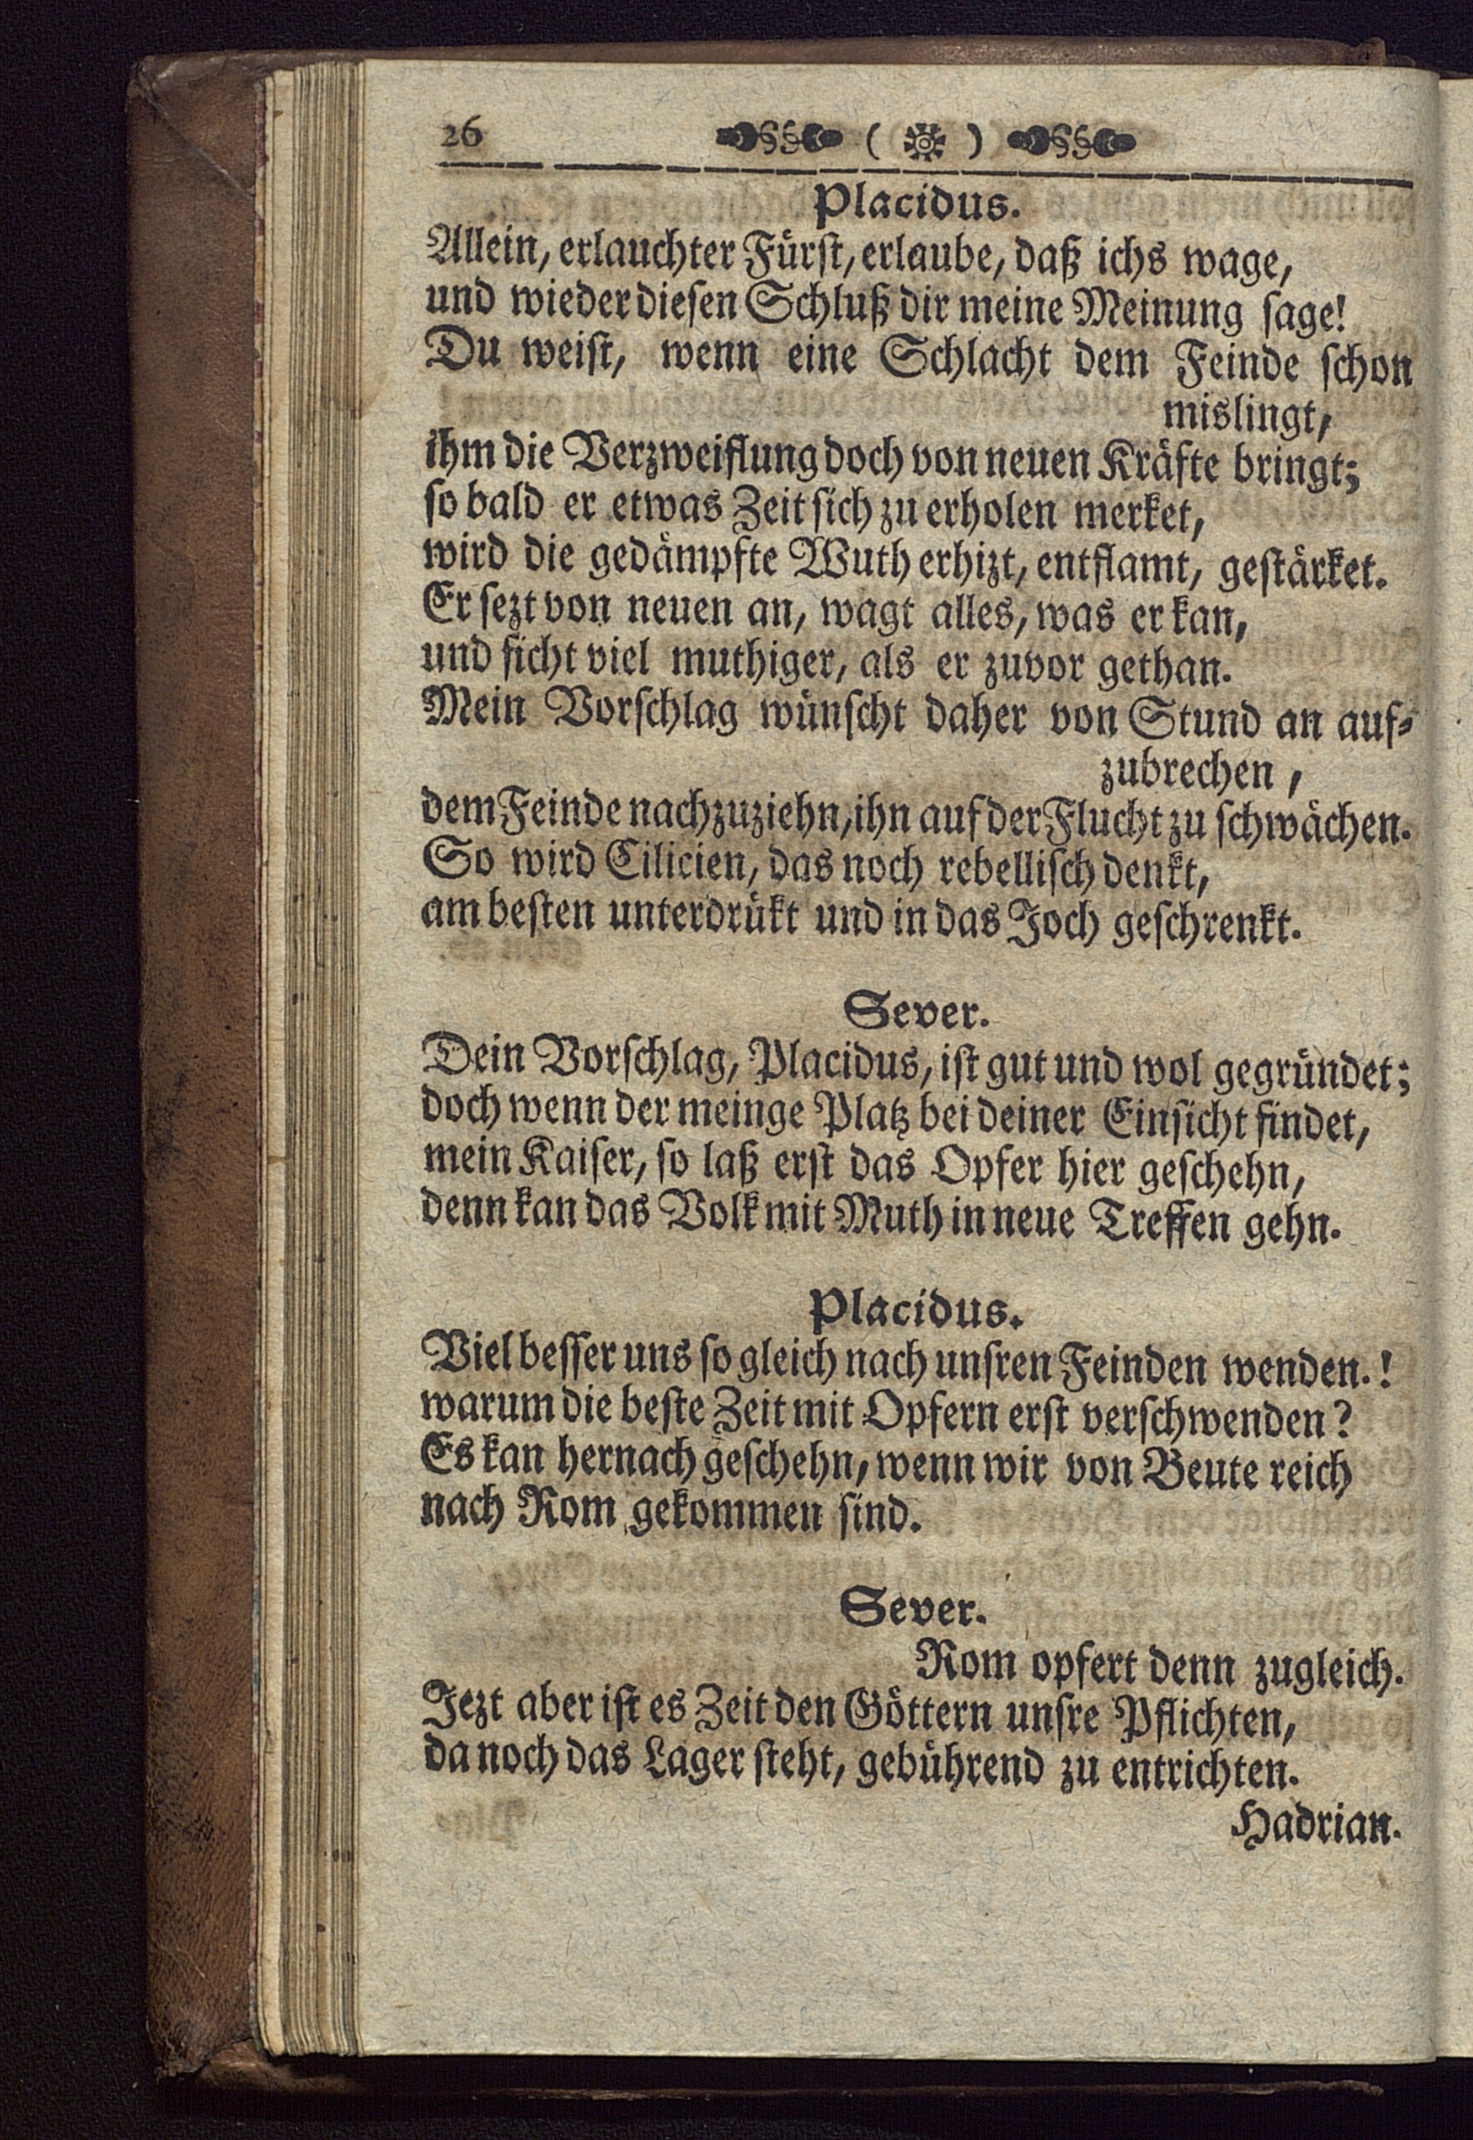 26
Placidus.
Allein, erlauchter Fürst, erlaube, daß ichs wage,
und wieder diesen Schluß dir meine Meinung sage!
Du weist, wenn eine Schlacht dem Feinde schon
mislingt,
ihm die Verzweiflung doch von neuen Kräfte bringt;
so bald er etwas Zeit sich zu erholen merket,
wird die gedämpfte Wuth erhizt, entflamt, gestärket.
Er sezt von neuen an, wagt alles, was er kan,
und ficht viel muthiger, als er zuvor gethan.
Mein Vorschlag wünscht daher von Stund an auf-
zubrechen,
dem Feinde nachzuziehn, ihn auf der Flucht zu schwächen.
So wird Cilicien, das noch rebellisch denkt,
am besten unterdrükt und in das Joch geschrenkt.
Sever.
Dein Vorschlag, Placidus, ist gut und wol gegründet;
doch wenn der meinge Platz bei deiner Einsicht findet,
mein Kaiser, so laß erst das Opfer hier geschehn,
denn kan das Volk mit Muth in neue Treffen gehn.
Placidus.
Viel besser uns so gleich nach unsren Feinden wenden.!
warum die beste Zeit mit Opfern erst verschwenden?
Es kan hernach geschehn, wenn wir von Beute reich
nach Rom gekommen sind.
Sever.
Rom opfert denn zugleich.
Jezt aber ist es Zeit den Göttern unsre Pflichten,
da noch das Lager steht, gebührend zu entrichten.
Hadrian.